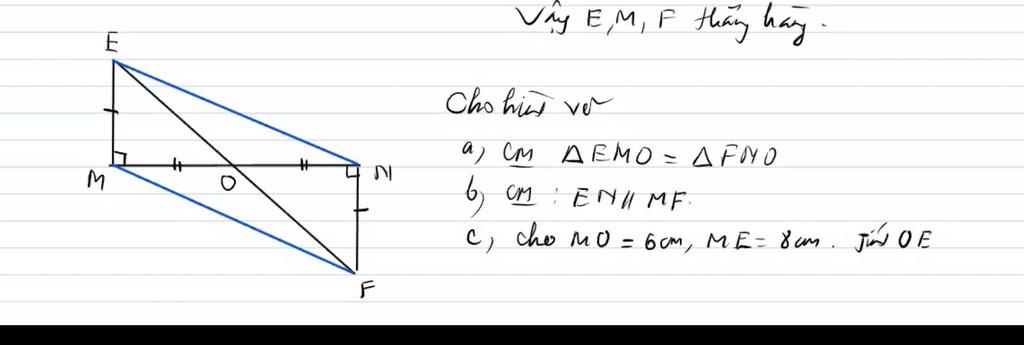 Vậy E, M, F thẳng hàng.
E
Cho hình vẽ
a, CM ΔEMO = ΔFNO
M
O
N
b, CM : EN // MF.
c, cho MO = 6cm, ME = 8cm. Tính OE
F